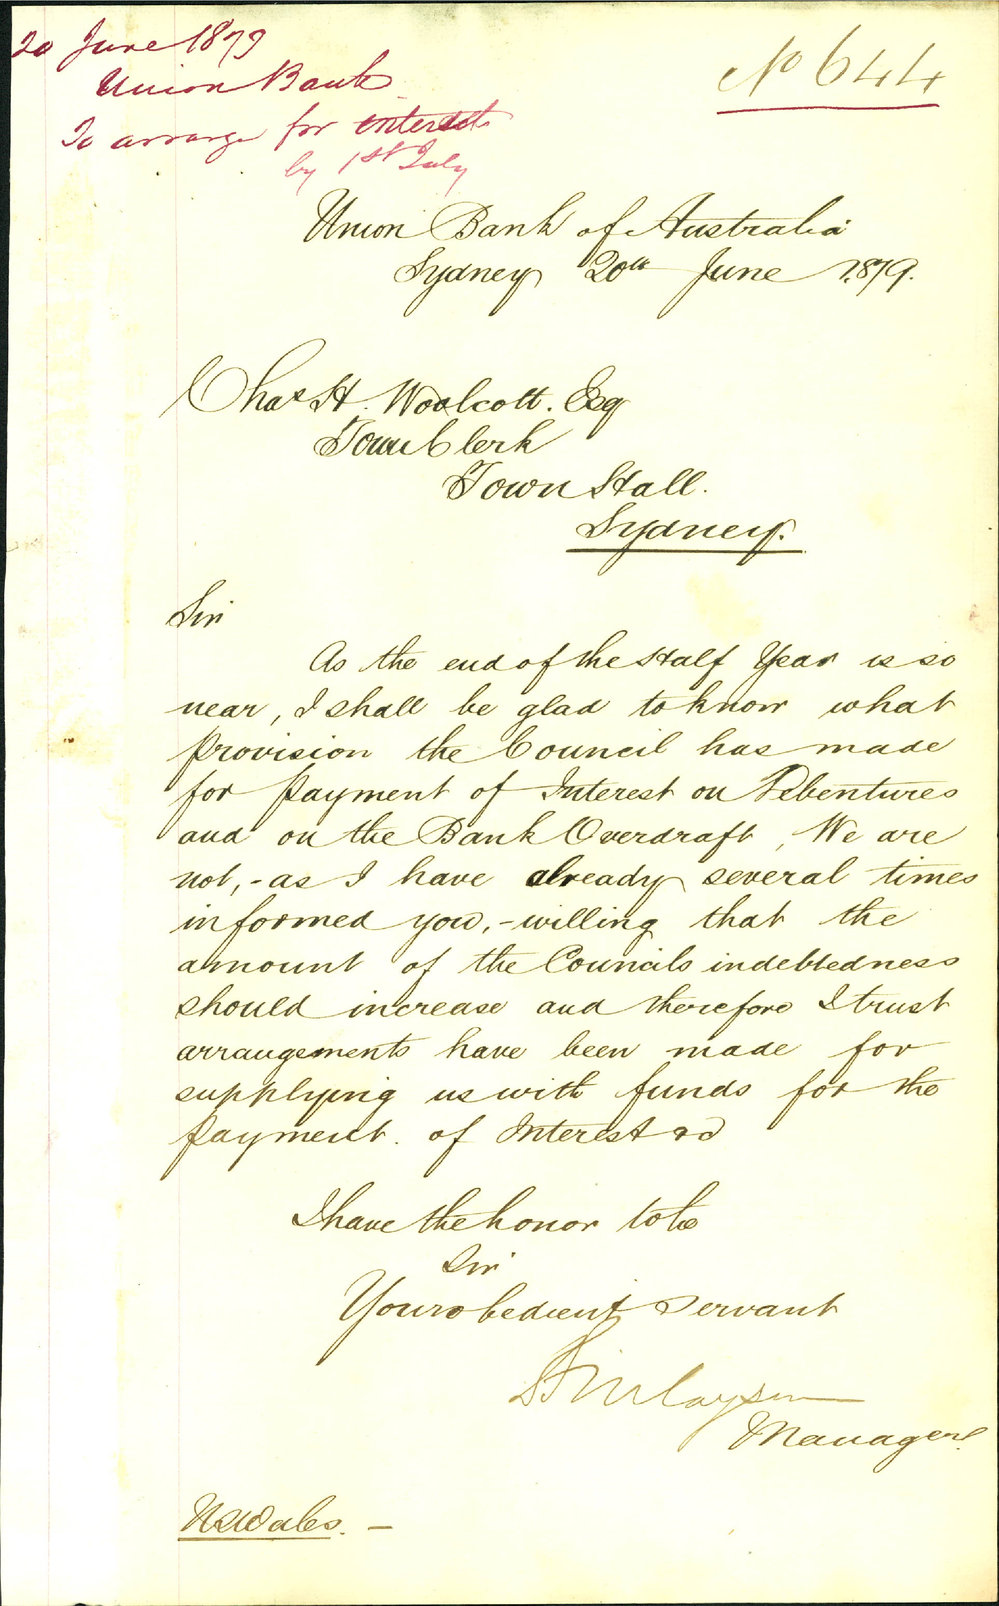 20 June 1879
Union Bank
To arrange for interest
by 1st July
No 644
Union Bank of Australia
Sydney 20th June 1879.
Chas H. Woolcott. Esq
Town Clerk
Town Hall.
Sydney.
Sir
As the end of the Half Year is so
near, I shall be glad to know what
provision the Council has made
for payment of Interest on Debentures
and on the Bank Overdraft, We are
not, - as I have already several times
informed you, - willing that the
amount of the Councils indebtedness
should increase and therefore I trust
arrangements have been made for
supplying us with funds for the
payment. of Interest &c
I have the honor to be
Sir
Your obedient Servant
Finlayson
Manager
NSWales. -